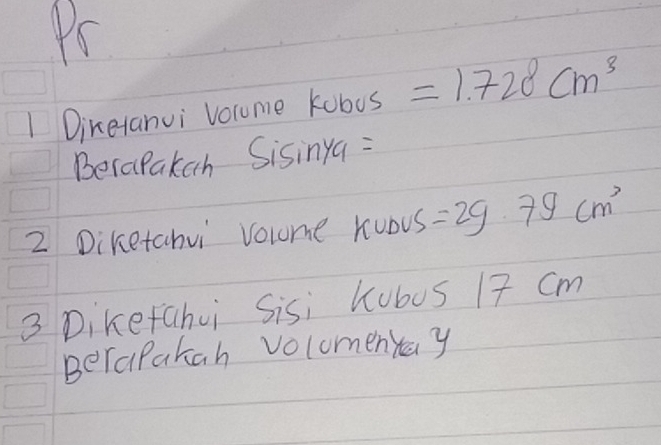 Pr
1 Diketahui Volume kubus = 1.728 Cm³
Berapakah Sisinya =
2 Diketahui Volume kubus = 29.79 cm³
3 Diketahui Sisi kubus 17 cm
Berapakah Volumenya y